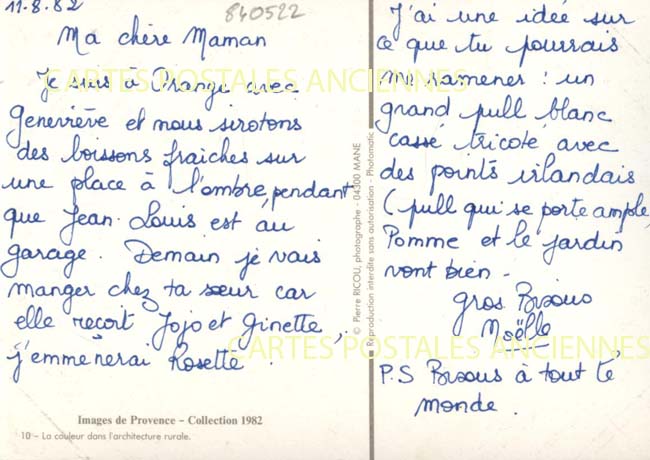 11.8.82
840522
Ma chère Maman
Je suis à Orange avec
Geneviève et nous sirotons
des boissons fraîches sur
une place à l'ombre, pendant
que Jean-Louis est au
garage. Demain je vais
manger chez ta sœur car
elle reçoit Jojo et Ginette,
j'emmènerai Rosette.
Images de Provence – Collection 1982
10 – La couleur dans l'architecture rurale.
© Pierre RICOU, photographe - 04300 MANE
Reproduction interdite sans autorisation - Photomatic
J'ai une idée sur
ce que tu pourrais
me ramener : un
grand pull blanc
cassé tricoté avec
des points irlandais
(pull qui se porte ample
Pomme et le jardin
vont bien -
gros Bisous
Noëlle
P.S Bisous à tout le
monde.
CARTES POSTALES ANCIENNES
CARTES POSTALES ANCIENNES